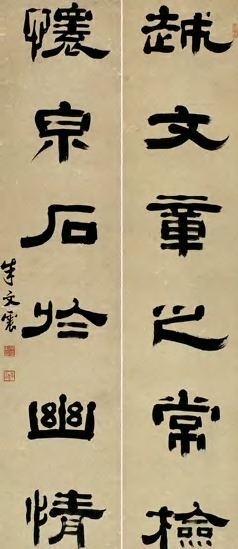 越文章之常檢
懷泉石於幽情
朱文震